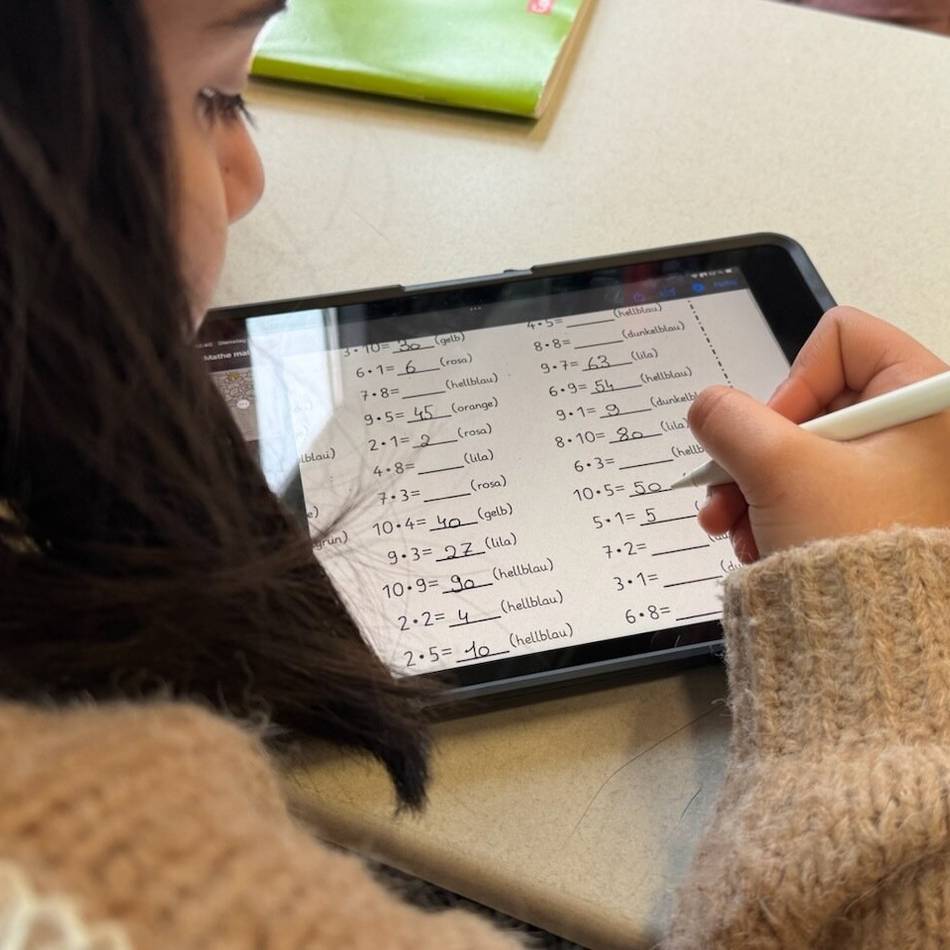 Mathe mal
lblau)
e)
grün)
3 · 10 = 30 (gelb)
6 · 1 = 6 (rosa)
7 · 8 = ____ (hellblau)
9 · 5 = 45 (orange)
2 · 1 = 2 (rosa)
4 · 8 = ____ (lila)
7 · 3 = ____ (rosa)
10 · 4 = 40 (gelb)
9 · 3 = 27 (lila)
10 · 9 = 90 (hellblau)
2 · 2 = 4 (hellblau)
2 · 5 = 10 (hellblau)
4 · 5 = ____ (hellblau)
8 · 8 = ____ (dunkelblau)
9 · 7 = 63 (lila)
6 · 9 = 54 (hellblau)
9 · 1 = 9 (dunkelbl
8 · 10 = 80 (lila)
6 · 3 = ____ (hellb
10 · 5 = 50
5 · 1 = 5 (
7 · 2 = ____ (du
3 · 1 = ____ (du
6 · 8 = ____